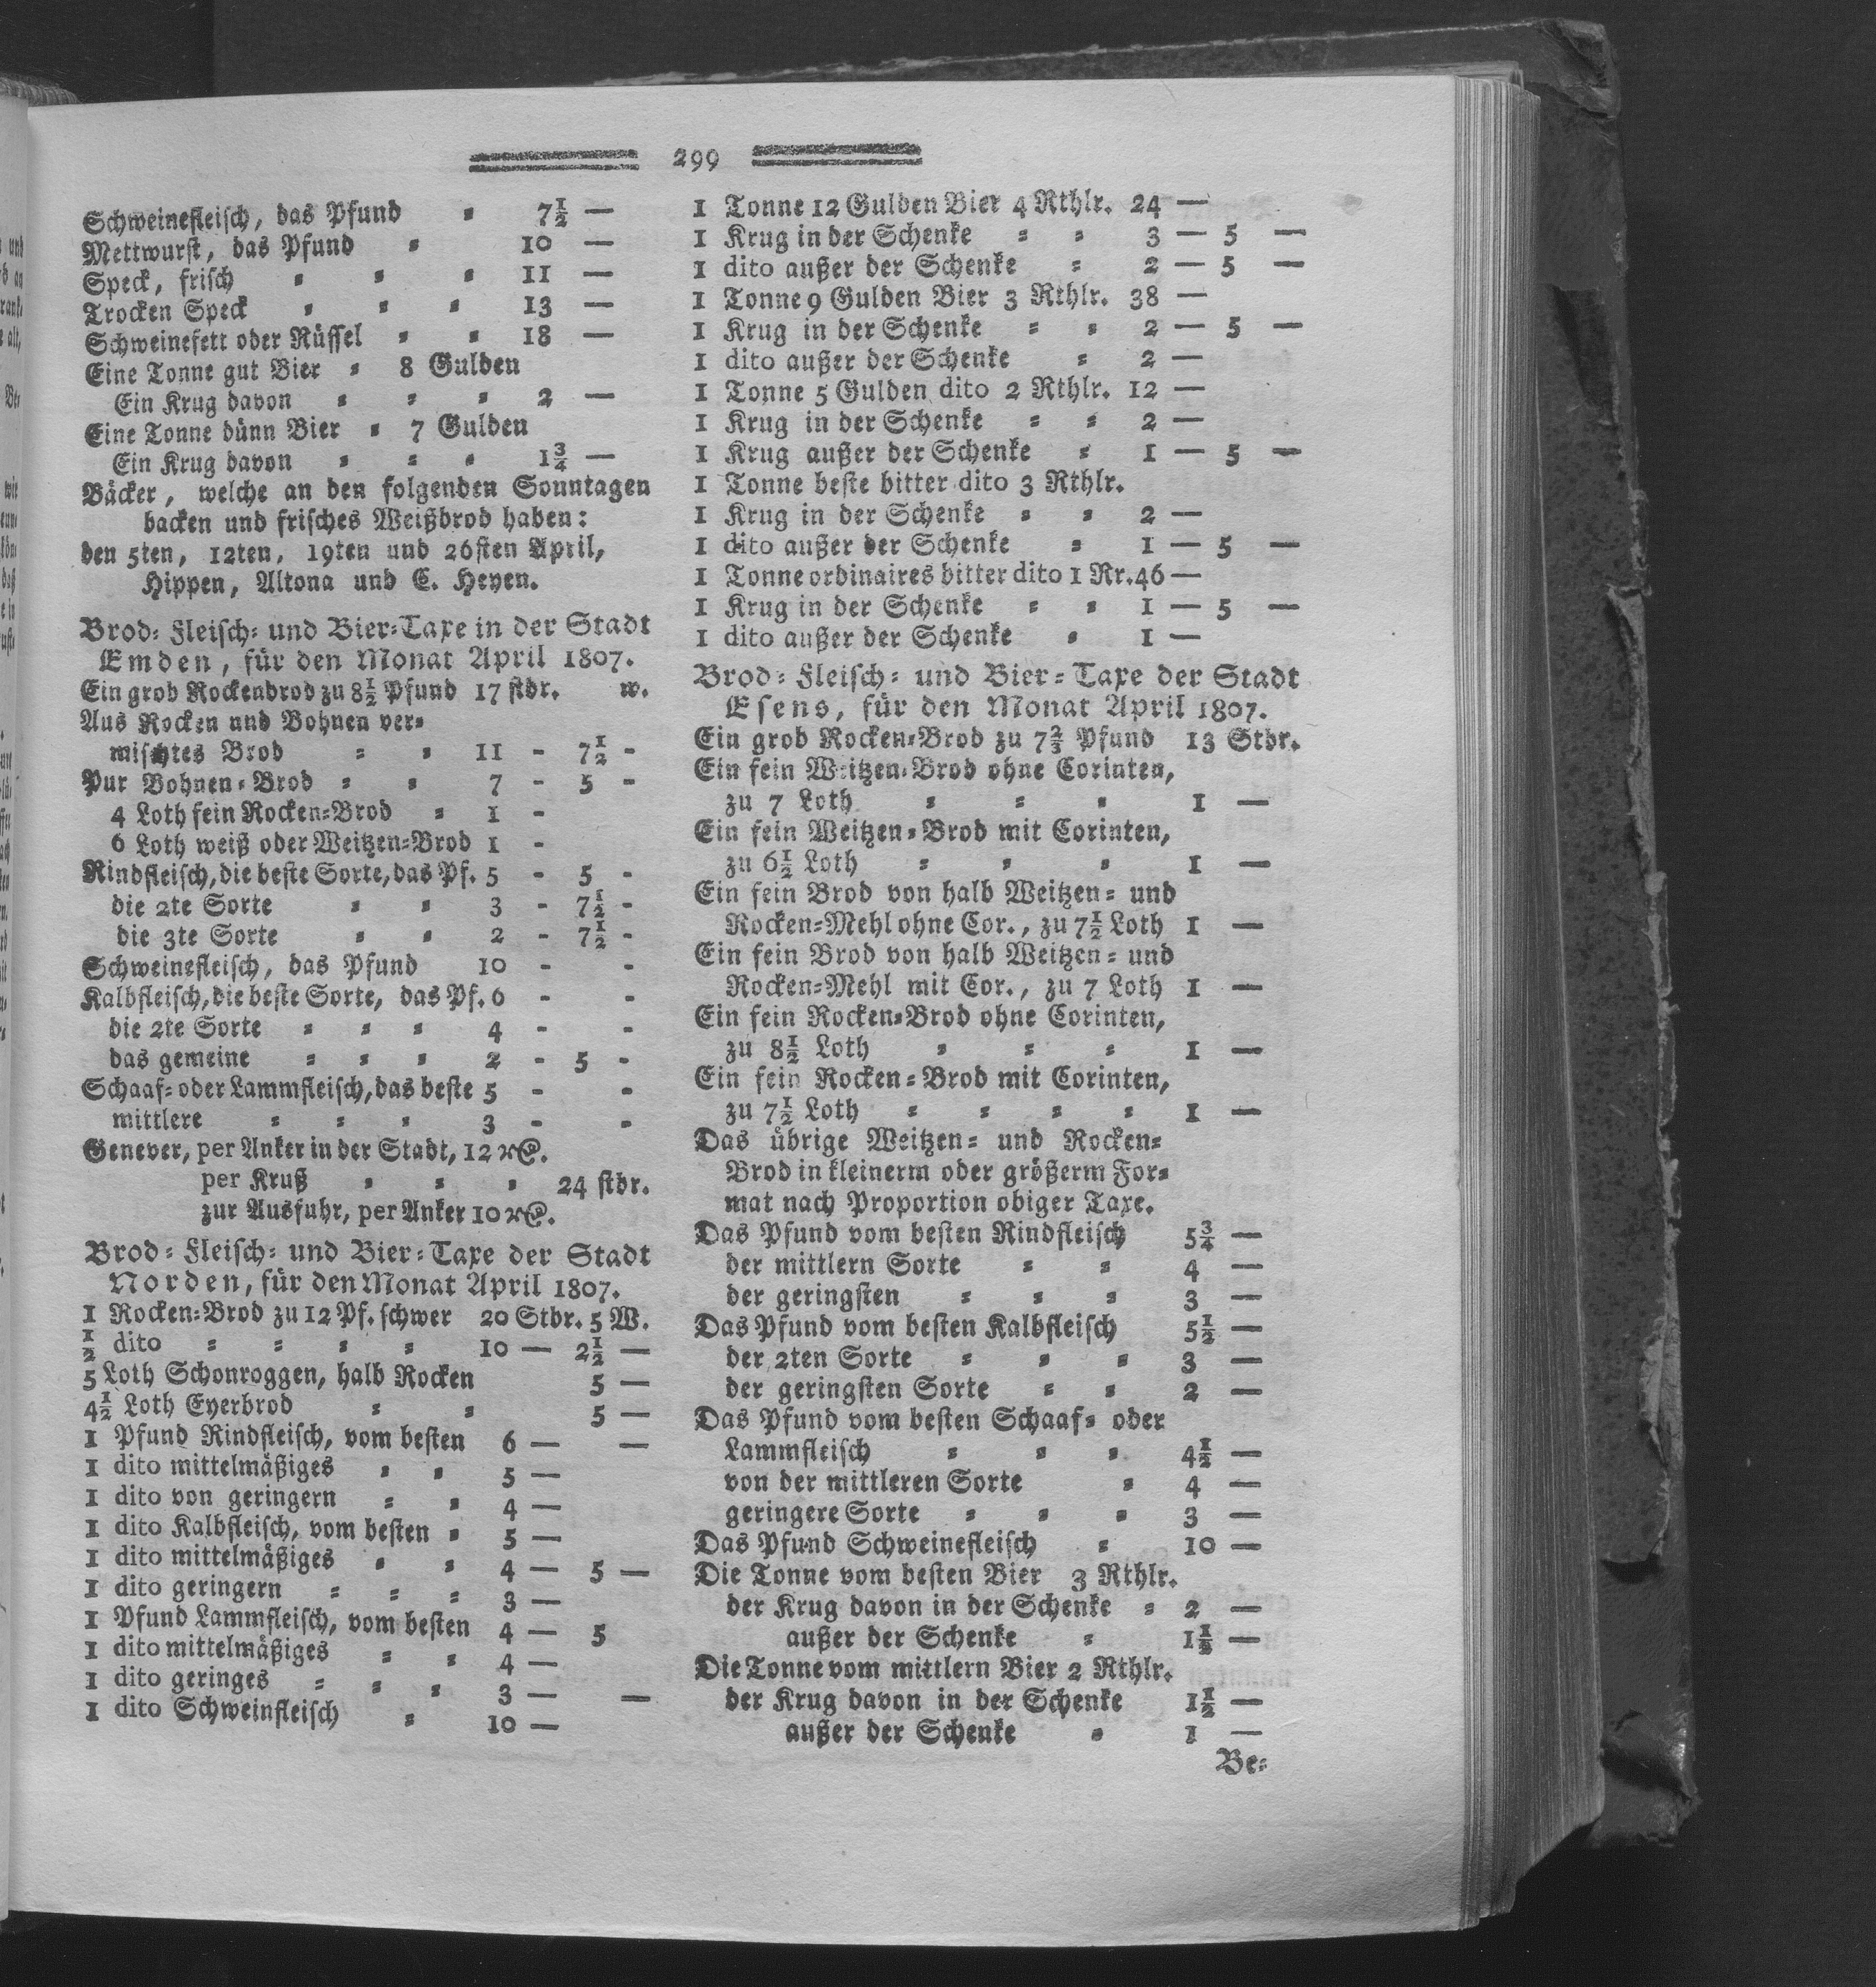 299
Schweinefleisch, das Pfund = 7½ —
Mettwurst, das Pfund = 10 —
Speck, frisch = = = 11 —
Trocken Speck = = = 13 —
Schweinefett oder Rüssel = = 18 —
Eine Tonne gut Bier = 8 Gulden
Ein Krug davon = = = 2 —
Eine Tonne dünn Bier = 7 Gulden
Ein Krug davon = = = 1¾ —
Bäcker, welche an den folgenden Sonntagen
backen und frisches Weißbrod haben:
den 5ten, 12ten, 19ten und 26sten April,
Hippen, Altona und C. Heyen.
Brod= Fleisch= und Bier=Taxe in der Stadt
Emden, für den Monat April 1807.
Ein grob Rockenbrod zu 8½ Pfund 17 stbr. w.
Aus Rocken und Bohnen ver=
mischtes Brod = = 11 - 7½ -
Pur Bohnen=Brod = = 7 - 5 -
4 Loth fein Rocken=Brod = 1 -
6 Loth weiß oder Weitzen=Brod 1 -
Rindfleisch, die beste Sorte, das Pf. 5 - 5 -
die 2te Sorte = = 3 - 7½ -
die 3te Sorte = = 2 - 7½ -
Schweinefleisch, das Pfund 10 - -
Kalbfleisch, die beste Sorte, das Pf. 6 - -
die 2te Sorte = = = 4 - -
das gemeine = = = 2 - 5 -
Schaaf= oder Lammfleisch, das beste 5 - -
mittlere = = = 3 - -
Genever, per Anker in der Stadt, 12 rℓ.
per Kruß = = = 24 stbr.
zur Ausfuhr, per Anker 10 rℓ.
Brod= Fleisch= und Bier=Taxe der Stadt
Norden, für den Monat April 1807.
1 Rocken=Brod zu 12 Pf. schwer 20 Stbr. 5 W.
½ dito = = = = 10 — 2½ —
5 Loth Schonroggen, halb Rocken 5 —
4½ Loth Eyerbrod = = 5 —
1 Pfund Rindfleisch, vom besten 6 — —
1 dito mittelmäßiges = = 5 —
1 dito von geringern = = 4 —
1 dito Kalbfleisch, vom besten = 5 —
1 dito mittelmäßiges = = 4 — 5 —
1 dito geringern = = = 3 —
1 Pfund Lammfleisch, vom besten 4 — 5
1 dito mittelmäßiges = = 4 —
1 dito geringes = = = 3 — —
1 dito Schweinfleisch = 10 —
1 Tonne 12 Gulden Bier 4 Rthlr. 24 —
1 Krug in der Schenke = = 3 — 5 —
1 dito außer der Schenke = 2 — 5 —
1 Tonne 9 Gulden Bier 3 Rthlr. 38 —
1 Krug in der Schenke = = 2 — 5 —
1 dito außer der Schenke = 2 —
1 Tonne 5 Gulden dito 2 Rthlr. 12 —
1 Krug in der Schenke = = 2 —
1 Krug außer der Schenke = 1 — 5 —
1 Tonne beste bitter dito 3 Rthlr.
1 Krug in der Schenke = = 2 —
1 dito außer der Schenke = 1 — 5 —
1 Tonne ordinaires bitter dito 1 Rr. 46 —
1 Krug in der Schenke = = 1 — 5 —
1 dito außer der Schenke = 1 —
Brod= Fleisch= und Bier=Taxe der Stadt
Esens, für den Monat April 1807.
Ein grob Rocken=Brod zu 7⅔ Pfund 13 Stbr.
Ein fein Weitzen=Brod ohne Corinten,
zu 7 Loth = = = 1 —
Ein fein Weitzen=Brod mit Corinten,
zu 6½ Loth = = = 1 —
Ein fein Brod von halb Weitzen= und
Rocken=Mehl ohne Cor., zu 7½ Loth 1 —
Ein fein Brod von halb Weitzen= und
Rocken=Mehl mit Cor., zu 7 Loth 1 —
Ein fein Rocken=Brod ohne Corinten,
zu 8½ Loth = = = 1 —
Ein fein Rocken=Brod mit Corinten,
zu 7½ Loth = = = = 1 —
Das übrige Weitzen= und Rocken=
Brod in kleinerm oder größerm For=
mat nach Proportion obiger Taxe.
Das Pfund vom besten Rindfleisch 5¾ —
der mittlern Sorte = = 4 —
der geringsten = = = 3 —
Das Pfund vom besten Kalbfleisch 5½ —
der 2ten Sorte = = = 3 —
der geringsten Sorte = = 2 —
Das Pfund vom besten Schaaf= oder
Lammfleisch = = = 4½ —
von der mittleren Sorte = 4 —
geringere Sorte = = = 3 —
Das Pfund Schweinefleisch = 10 —
Die Tonne vom besten Bier 3 Rthlr.
der Krug davon in der Schenke = 2 —
außer der Schenke = 1½ —
Die Tonne vom mittlern Bier 2 Rthlr.
der Krug davon in der Schenke 1½ —
außer der Schenke = 1 —
Be=